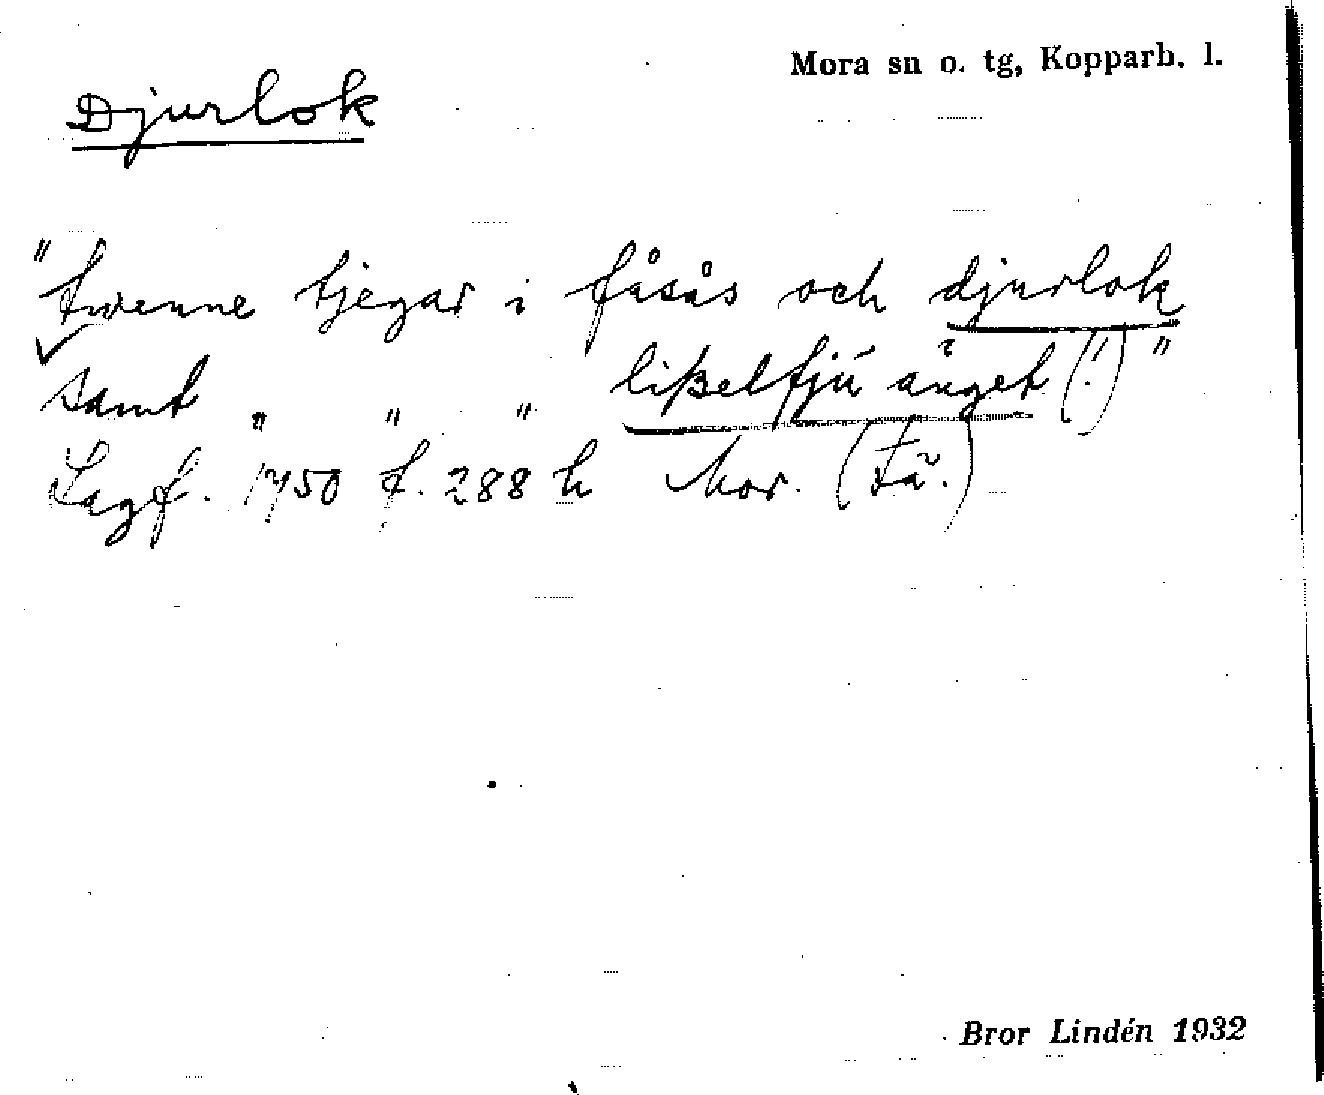 Mora sn o. tg, Kopparb. l.
Djurlok
"twenne tjegar i fåsås och djurlok
samt " " " lißelfjü änget (!)"
Lagf. 1750 f. 288 h Mor. (Fä.)
Bror Lindén 1932